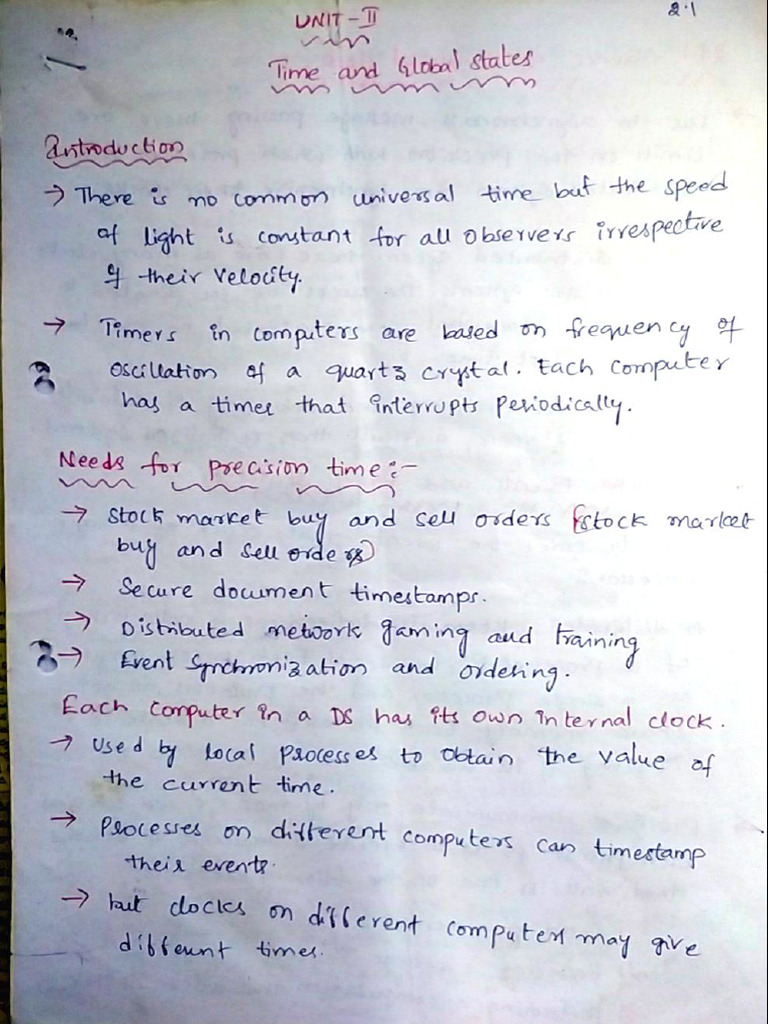 2.1
UNIT-II
Time and Global states
Introduction
→ There is no common universal time but the speed
of light is constant for all observers irrespective
of their velocity.
→ Timers in computers are based on frequency of
oscillation of a quartz crystal. Each computer
has a timer that interrupts periodically.
Needs for precision time:-
→ Stock market buy and sell orders (stock market
buy and sell orders)
→ Secure document timestamps.
→ Distributed network gaming and training
→ Event synchronization and ordering.
Each computer in a DS has its own internal clock.
→ Used by local processes to obtain the value of
the current time.
→ Processes on different computers can timestamp
their events.
→ but clocks on different computers may give
different times.